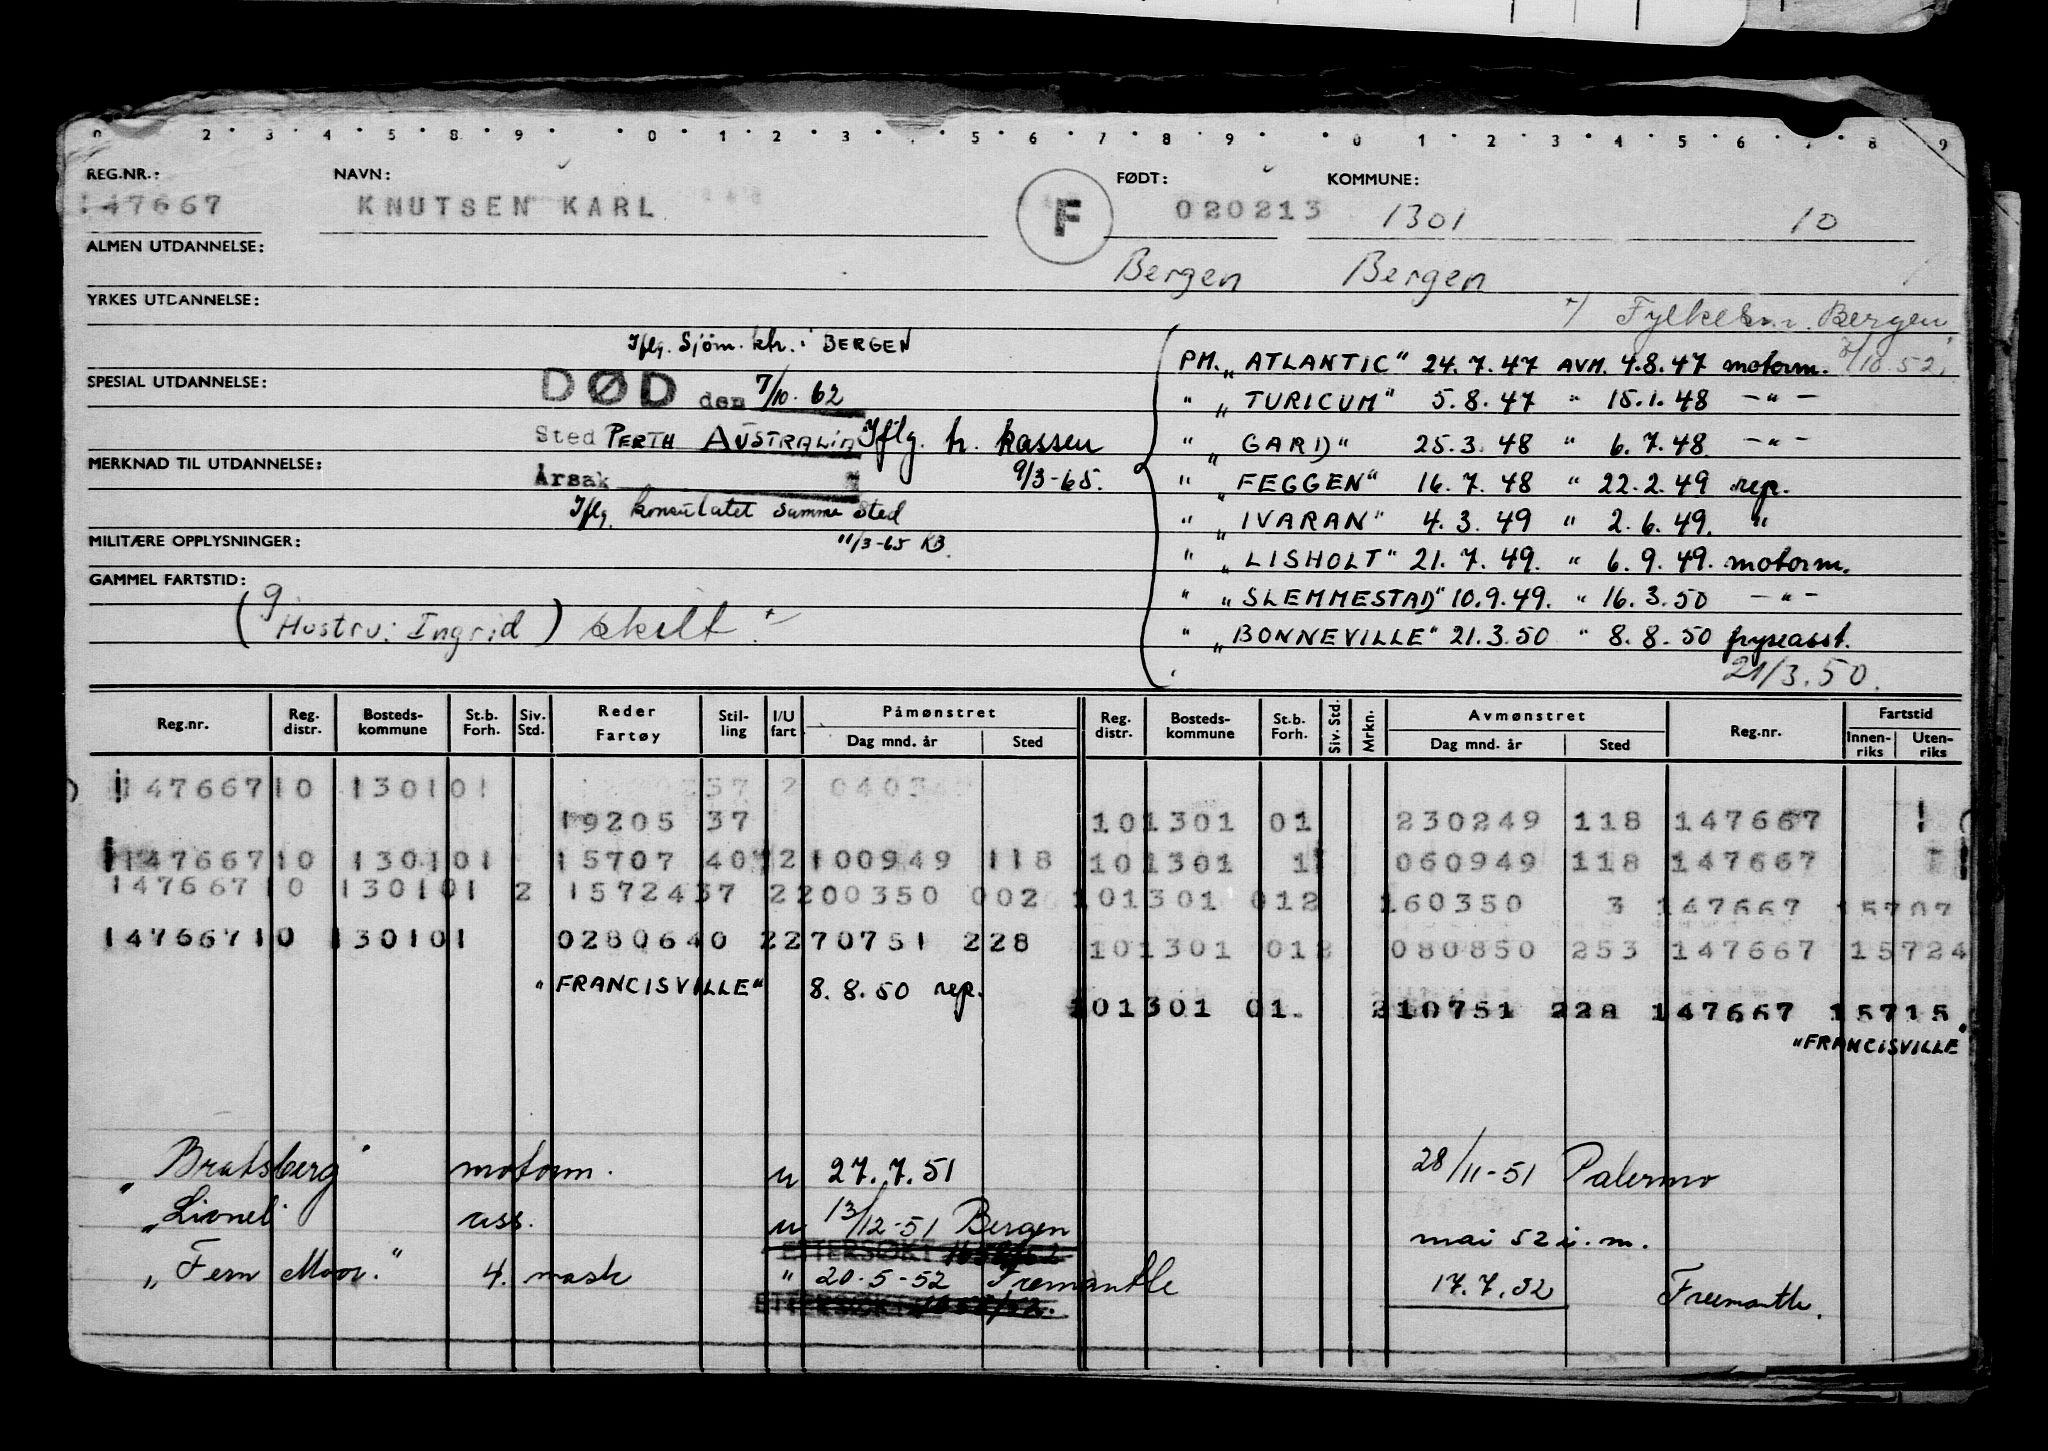 0 2 3 4 5 8 9 0 1 2 3 5 6 7 8 9 0 1 2 3 4 5 6 8 9
REG.NR.: NAVN: FØDT: KOMMUNE:
147667 KNUTSEN KARL F 020213 1301 10
ALMEN UTDANNELSE: Bergen Bergen
YRKES UTDANNELSE: +) Fylkesm. Bergen
Iflg. Sjöm. ktr. i BERGEN
PM. "ATLANTIC" 24.7.47 AVM. 4.8.47 motorm. 8/10.52.
SPESIAL UTDANNELSE: DØD den 7/10.62
" "TURICUM" 5.8.47 " 15.1.48 -"-
Sted PERTH AUSTRALIA Iflg. tr. kassen
" "GARD" 25.3.48 " 6.7.48 -"-
MERKNAD TIL UTDANNELSE: Årsak 9/3-65.
" "FEGGEN" 16.7.48 " 22.2.49 rep.
Iflg. konsulatet samme sted
" "IVARAN" 4.3.49 " 2.6.49. "
MILITÆRE OPPLYSNINGER: 11/3-65 KB.
" "LISHOLT" 21.7.49. " 6.9.49. motorm.
GAMMEL FARTSTID:
" "SLEMMESTAD" 10.9.49. " 16.3.50 -"-
(g Hustru: Ingrid) skilt +
" "BONNEVILLE" 21.3.50 " 8.8.50 fryseasst.
21/3.50.
Reg.nr. Reg. distr. Bosteds- kommune St.b. Forh. Siv. Std. Reder Fartøy Stil- ling I/U fart Påmønstret Dag mnd. år Sted Reg. distr. Bosteds- kommune St.b. Forh. Siv. Std. Mrkn. Avmønstret Dag mnd. år Sted Reg.nr. Fartstid Innen- riks Uten- riks
147667 10 1301 01 37 2
19205 37 10 1301 01 230249 118 147667
147667 10 1301 01 15707 40 2 100949 118 10 1301 1 060949 118 147667
147667 10 1301 01 2 15724 37 2 200350 002 10 1301 012 160350 3 147667 15707
147667 10 1301 01 02806 40 2 270751 228 10 1301 012 080850 253 147667 15724
"FRANCISVILLE" 8.8.50 rep.
10 1301 01. 210751 228 147667 15715
"FRANCISVILLE"
"Bratsberg" motorm. u 27.7.51 28/11-51 Palermo
"Lionel" ass. u 13/12-51 Bergen mai 52 i.m.
ETTERSØKT
"Fern Moor." 4. mask " 20-5-52 Fremantle 17.7.52 Freemantle.
ETTERSØKT